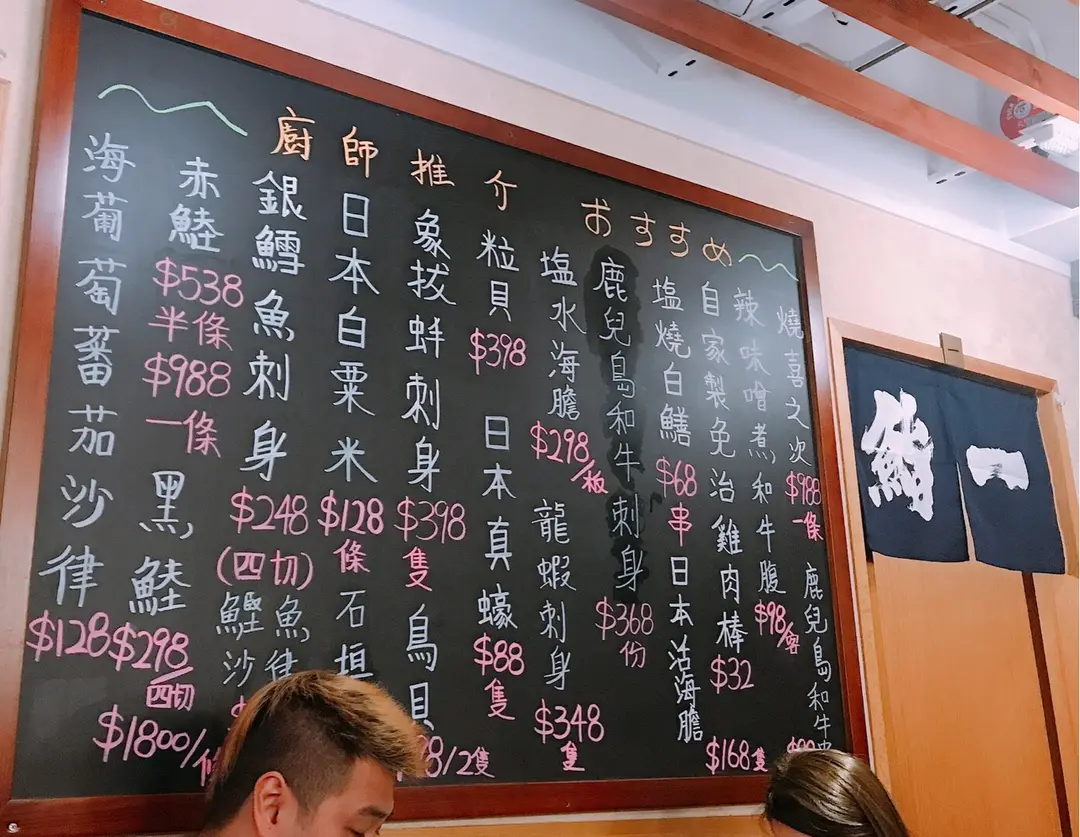 廚師推介 おすすめ
燒喜之次
$988
一條
鹿兒島和牛
辣味噌煮和牛腹
$98/客
自家製免治雞肉棒
$32
塩燒白鱔
$68
串
日本活海膽
$168隻
鹿兒島和牛刺身
$368
份
塩水海膽
$298/板
龍蝦刺身
$348
隻
粒貝
$398
日本真蠔
$88
隻
象拔蚌刺身
$398
隻
鳥貝
8/2隻
日本白粟米
$128
條
石垣
銀鱈魚刺身
$248
(四切)
鰹魚
沙律
赤鯥
$538
半條
$988
一條
黑鯥
$298/四切
$1800/條
海葡萄蕃茄沙律
$128
鮨一